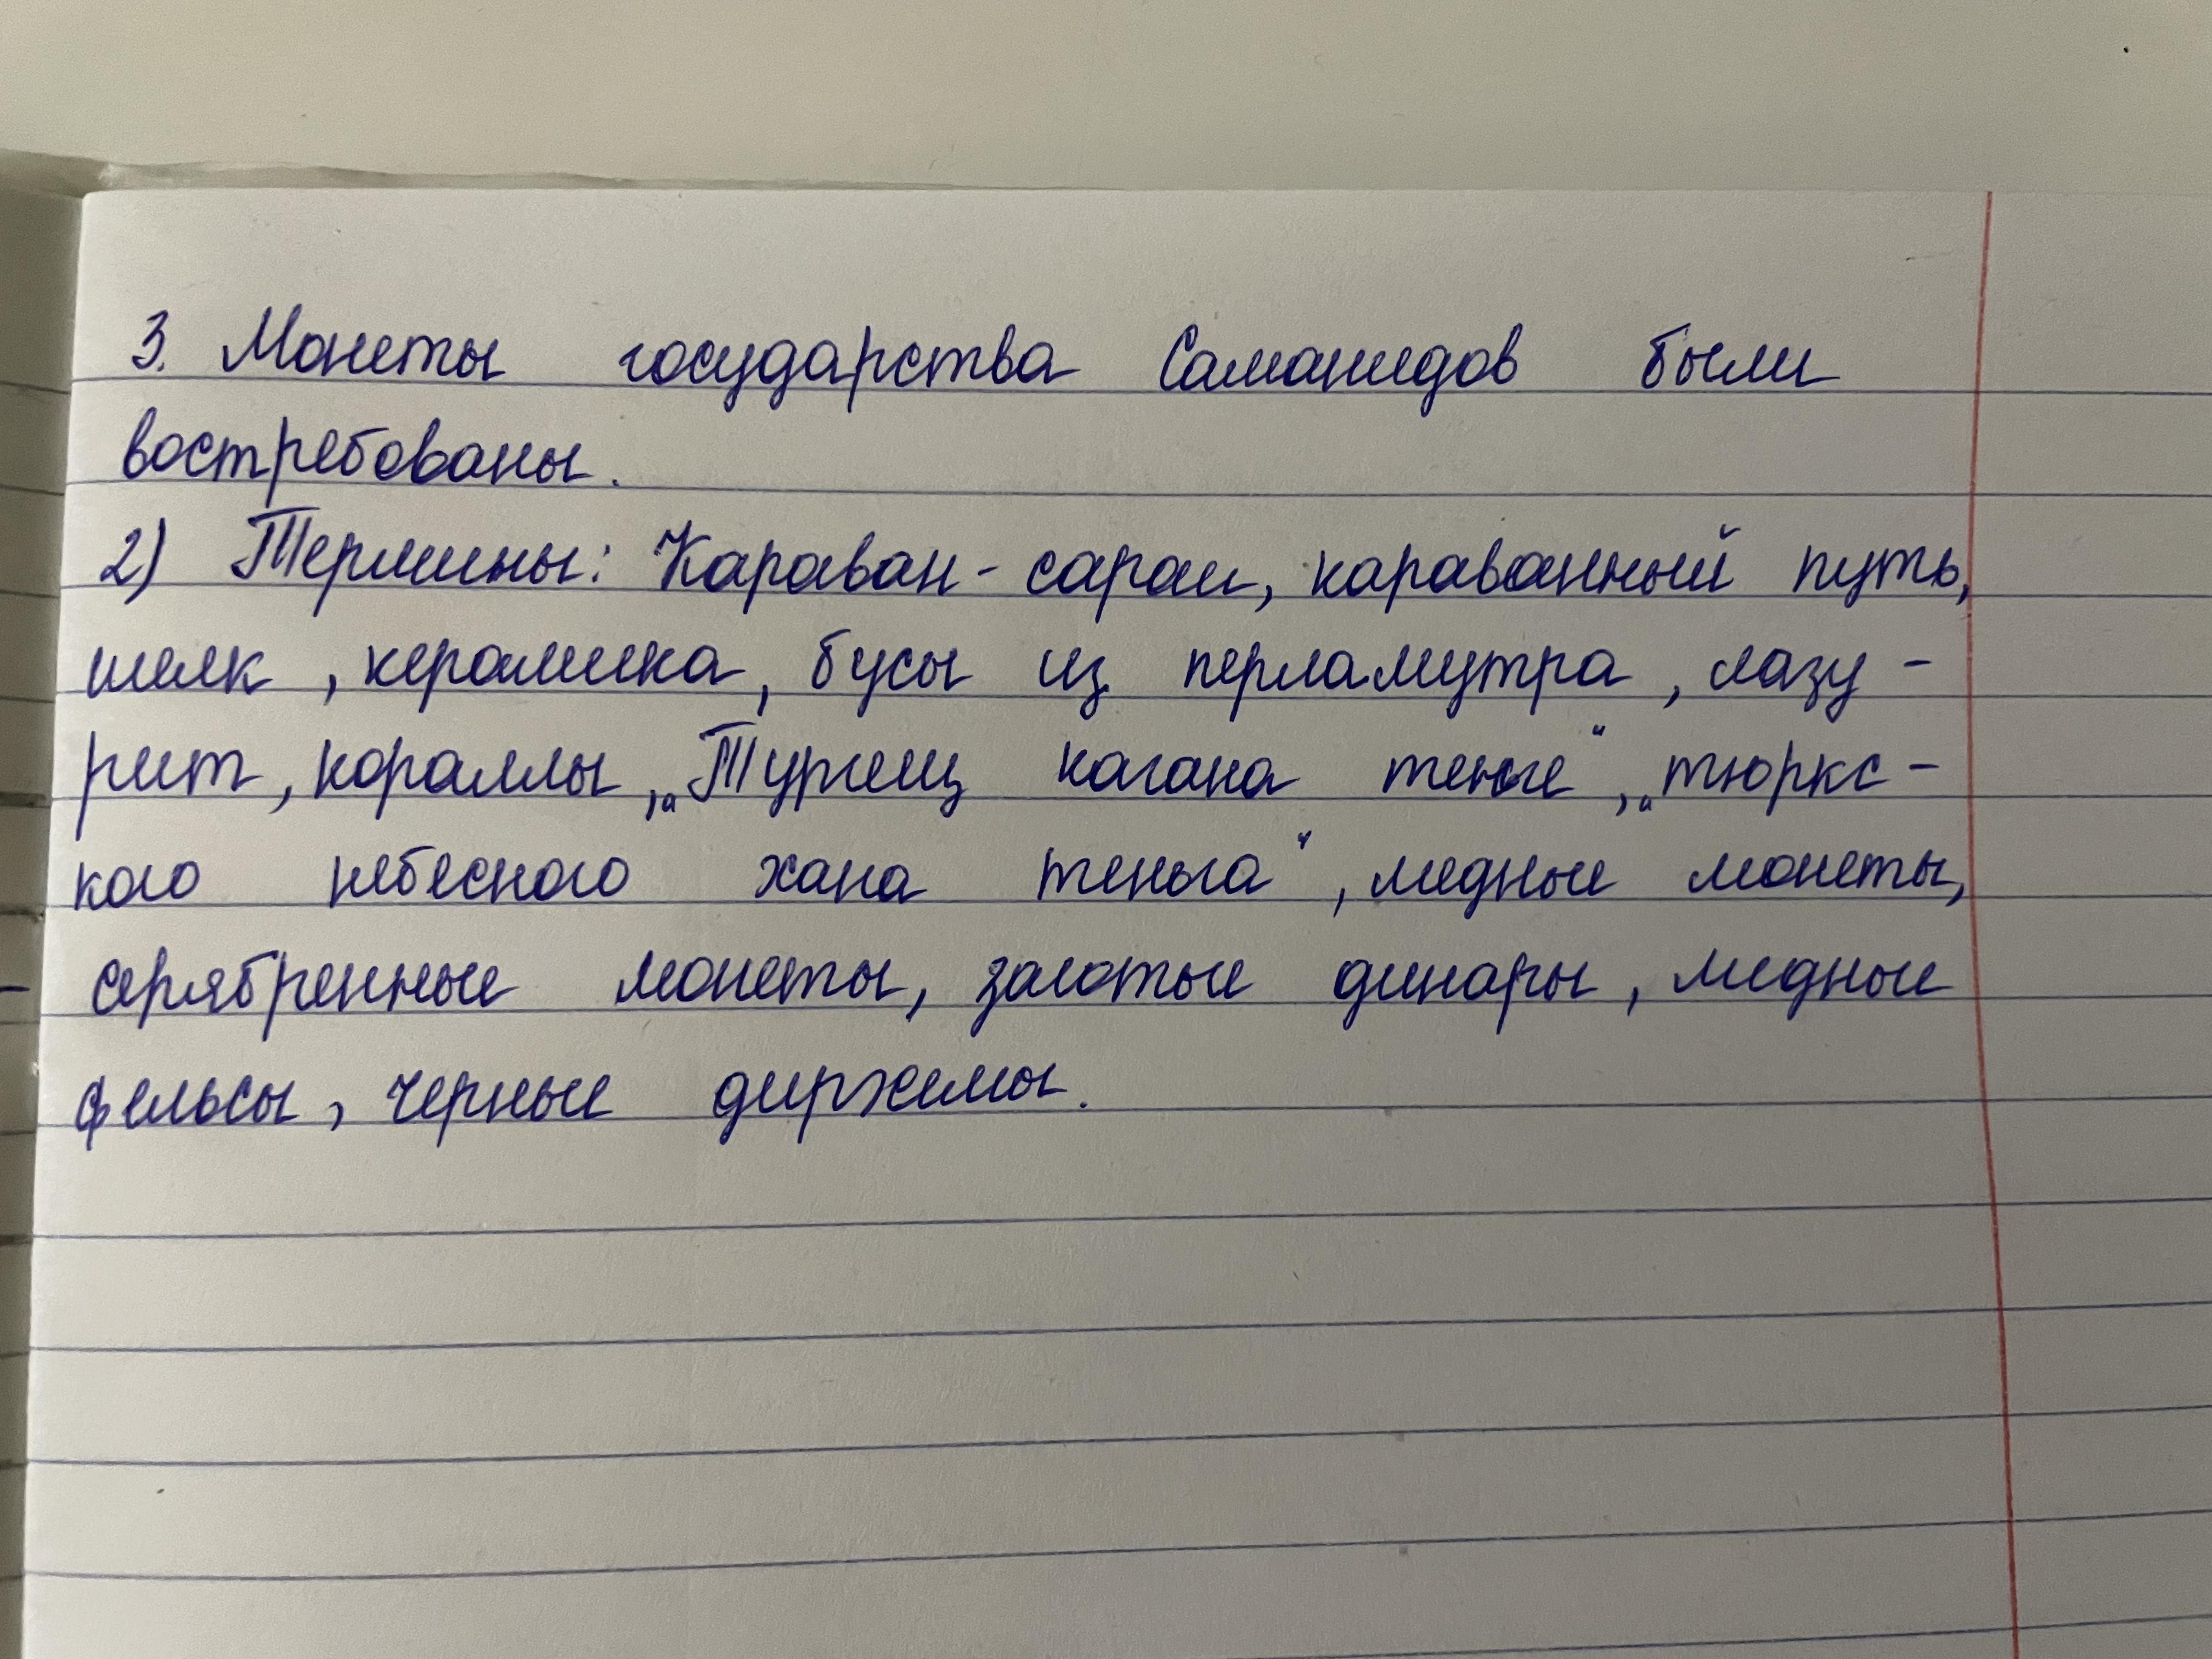 3. Монеты государства Саманидов были
востребованы.
2) Термины: Караван-сараи, караванный путь,
шелк, керамика, бусы из перламутра, лазу-
рит, кораллы, „Тургеш кагана теньге“, „тюркс-
кого небесного хана теньга“, медные монеты,
серябренные монеты, золотые динары, медные
фельсы, черные диржемы.